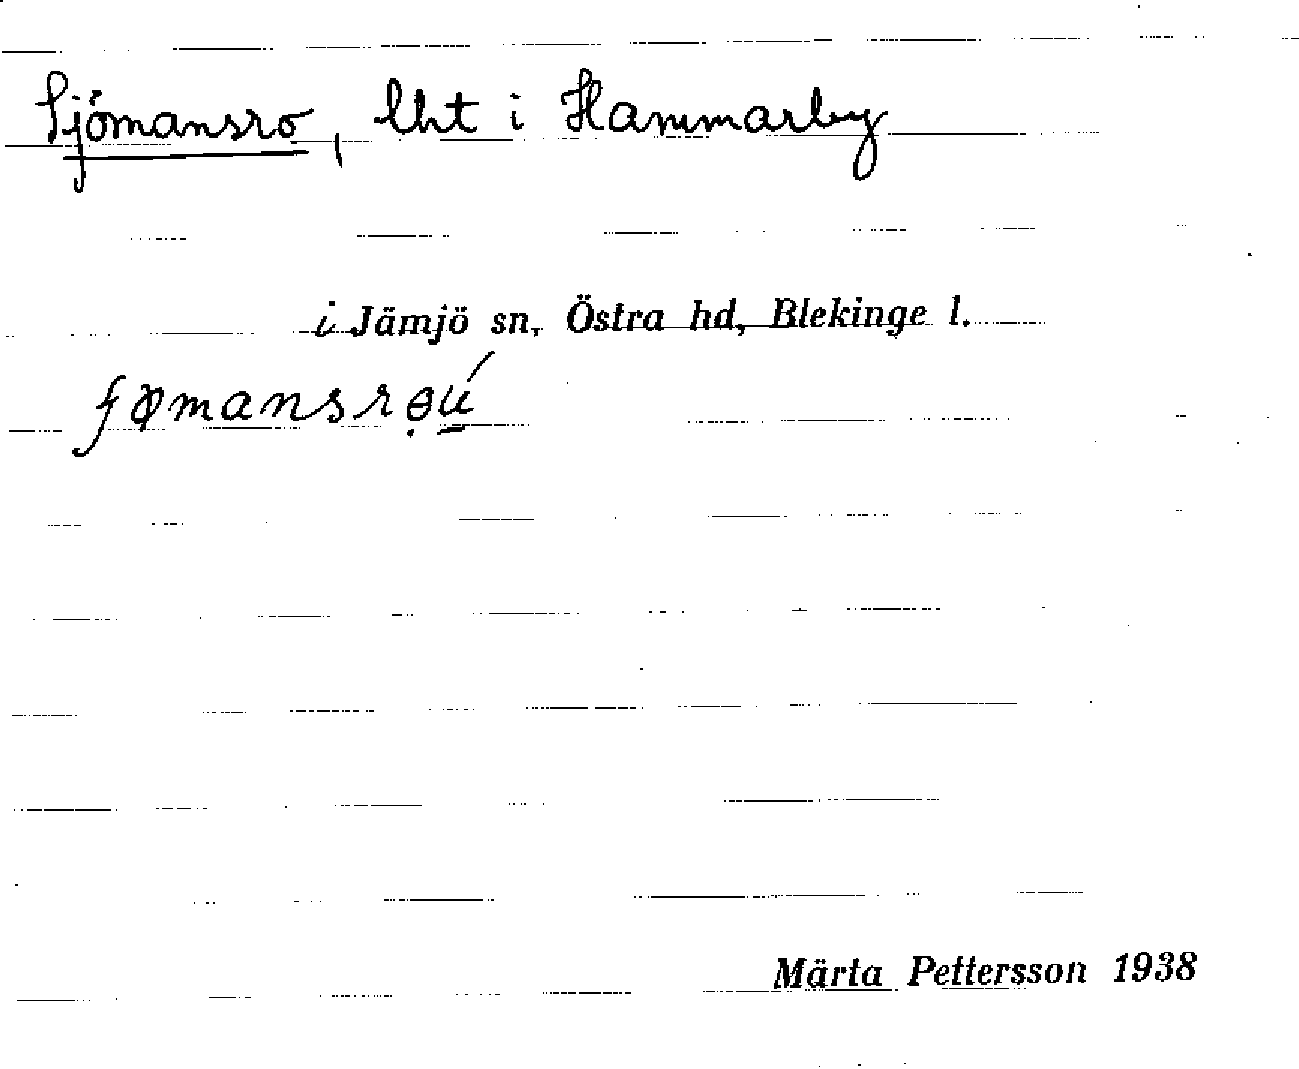 Sjömansro, lht i Hammarby
i Jämjö sn, Östra hd, Blekinge l.
ʃømansrɵ̣ú
Märta Pettersson 1938